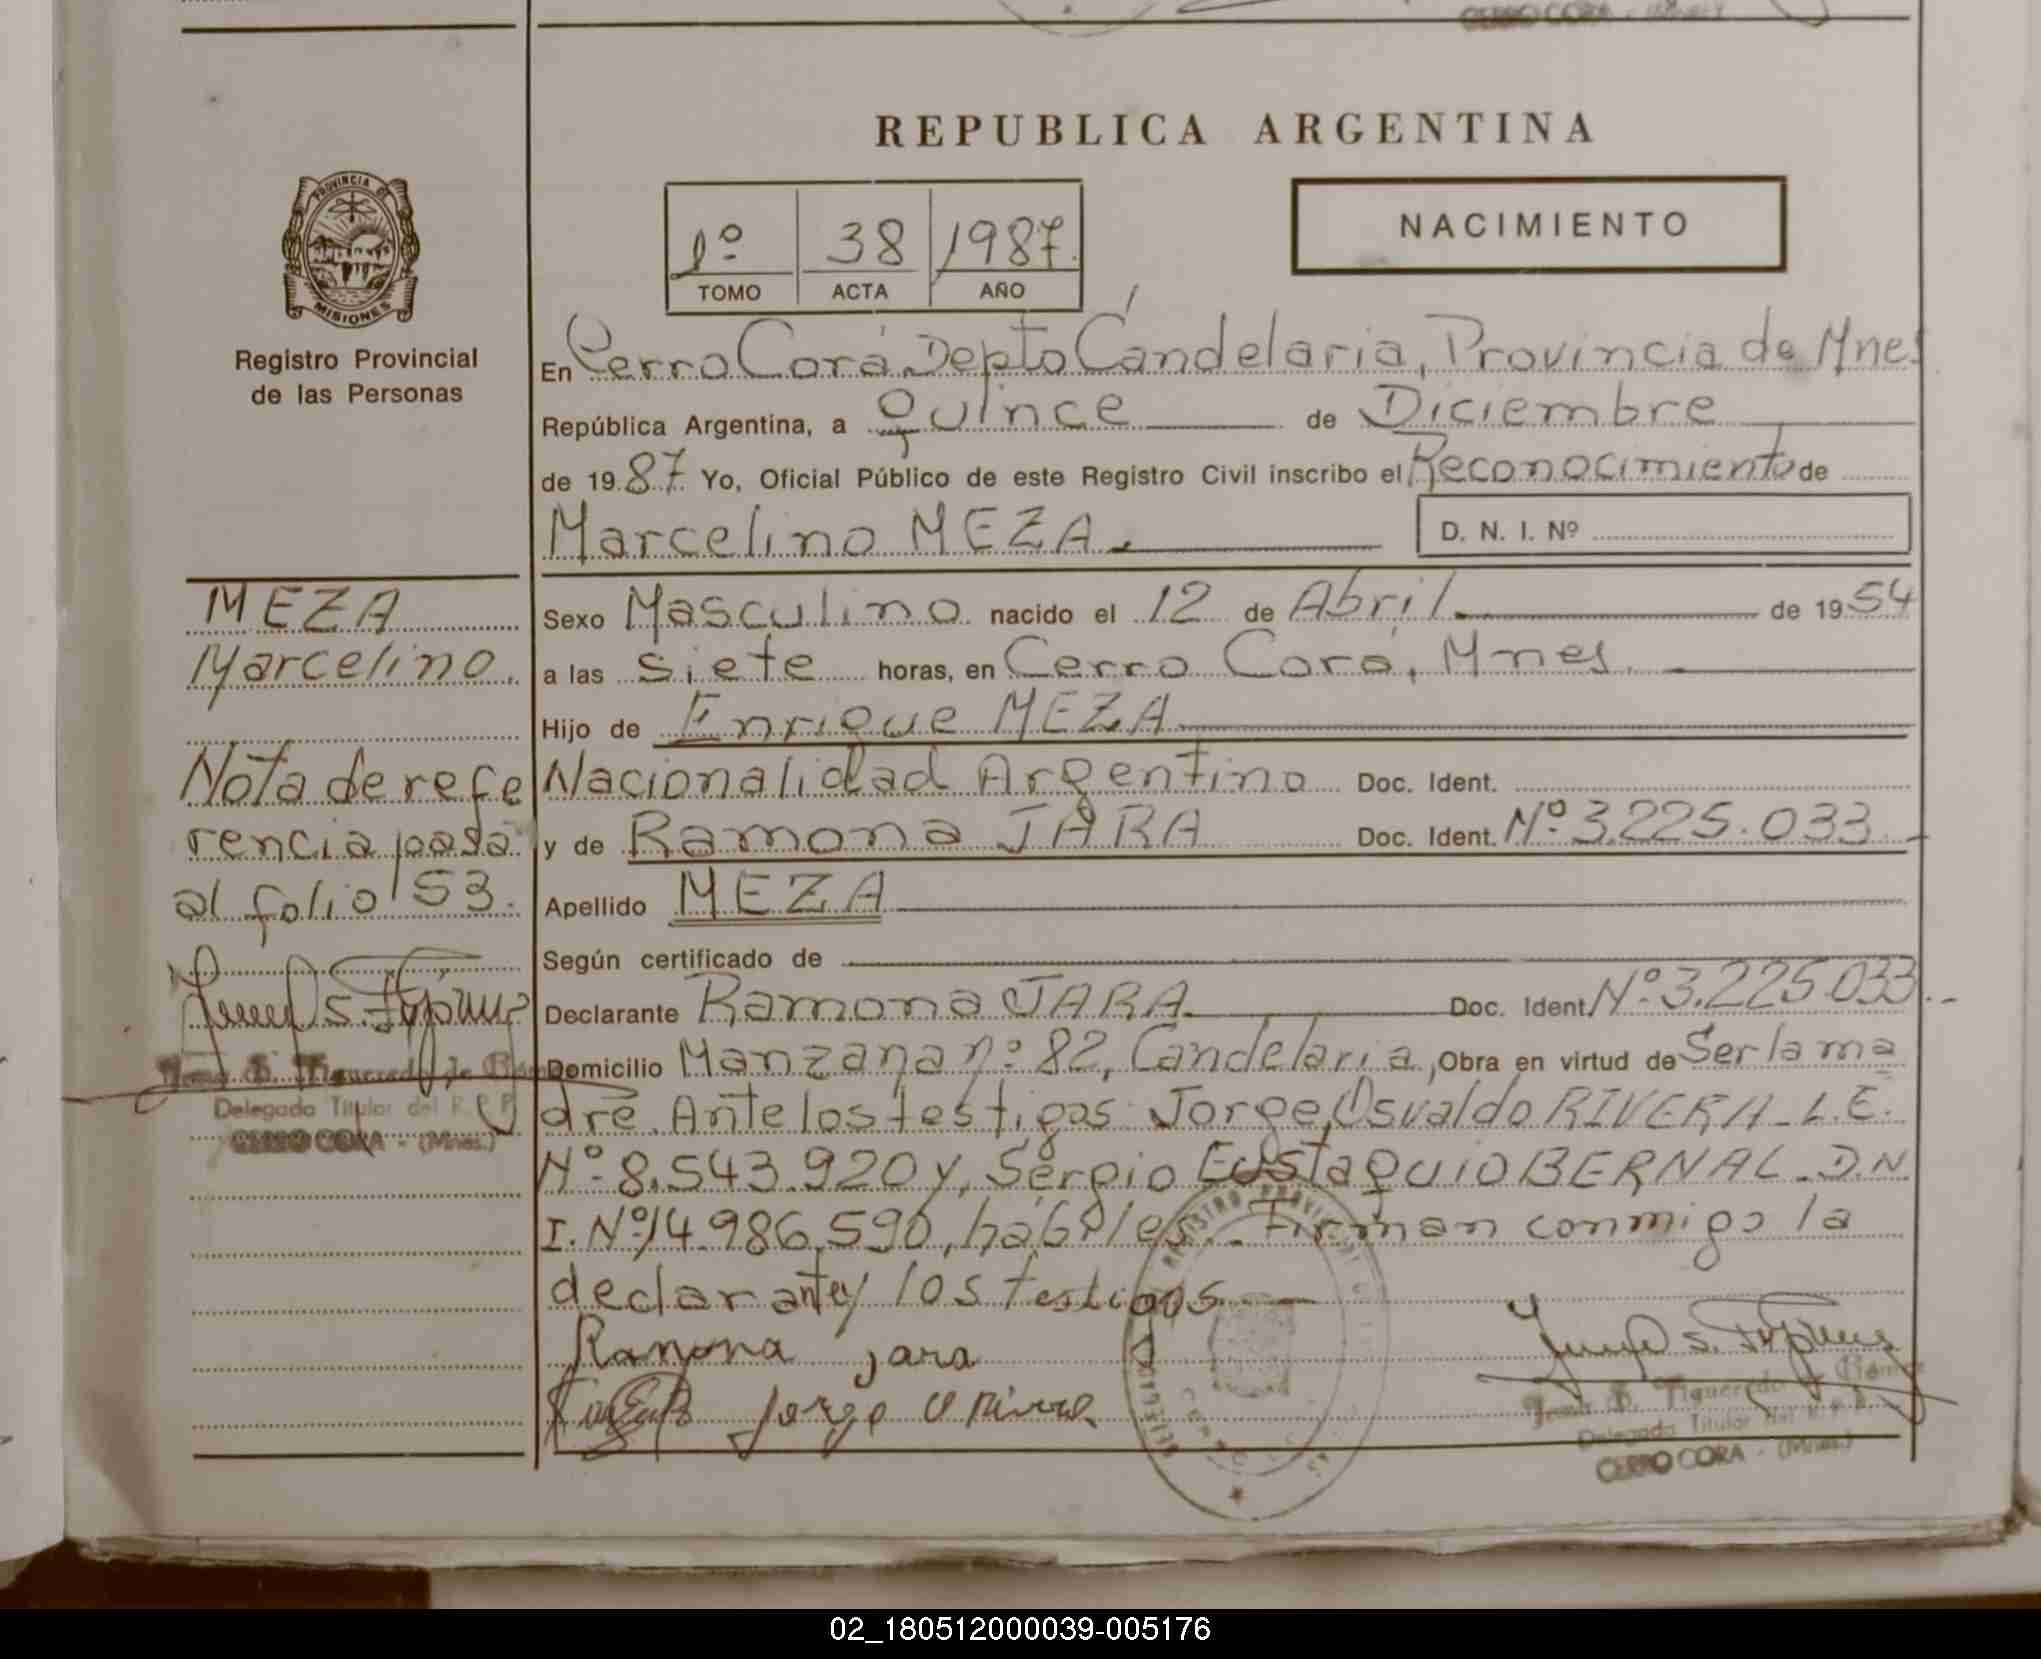 REPUBLICA ARGENTINA
PROVINCIA DE
MISIONES
Registro Provincial
de las Personas
1º 38 1987
TOMO ACTA AÑO
NACIMIENTO
En Cerro Corá Depto Candelaria, Provincia de Mnes
República Argentina, a quince de Diciembre
de 1987 Yo, Oficial Público de este Registro Civil inscribo el Reconocimiento de
Marcelino MEZA. D. N. I. Nº
MEZA
Marcelino.
Nota de refe
rencia pasa
al folio 53.
Delegado Titular del R.P.P.
CERRO CORA - (Mnes.)
Sexo Masculino nacido el 12 de Abril de 1954
a las siete horas, en Cerro Corá, Mnes.
Hijo de Enrique MEZA
Nacionalidad Argentino Doc. Ident.
y de Ramona JARA Doc. Ident. Nº 3.225.033
Apellido MEZA
Según certificado de
Declarante Ramona JARA Doc. Ident. Nº 3.225.033.-
Domicilio Manzana nº 82, Candelaria, Obra en virtud de Ser la ma
dre. Ante los testigos: Jorge Osvaldo RIVERA - L.E.
Nº 8.543.920 y, Sergio Eustaquio BERNAL - D.N.
I. Nº 14.986.590, hábiles.- Firman conmigo la
declarante y los testigos
Ramona jara
Jorge O Rivera
Delegado Titular del R.P.P.
CERRO CORA - (Mnes.)
02_180512000039-005176